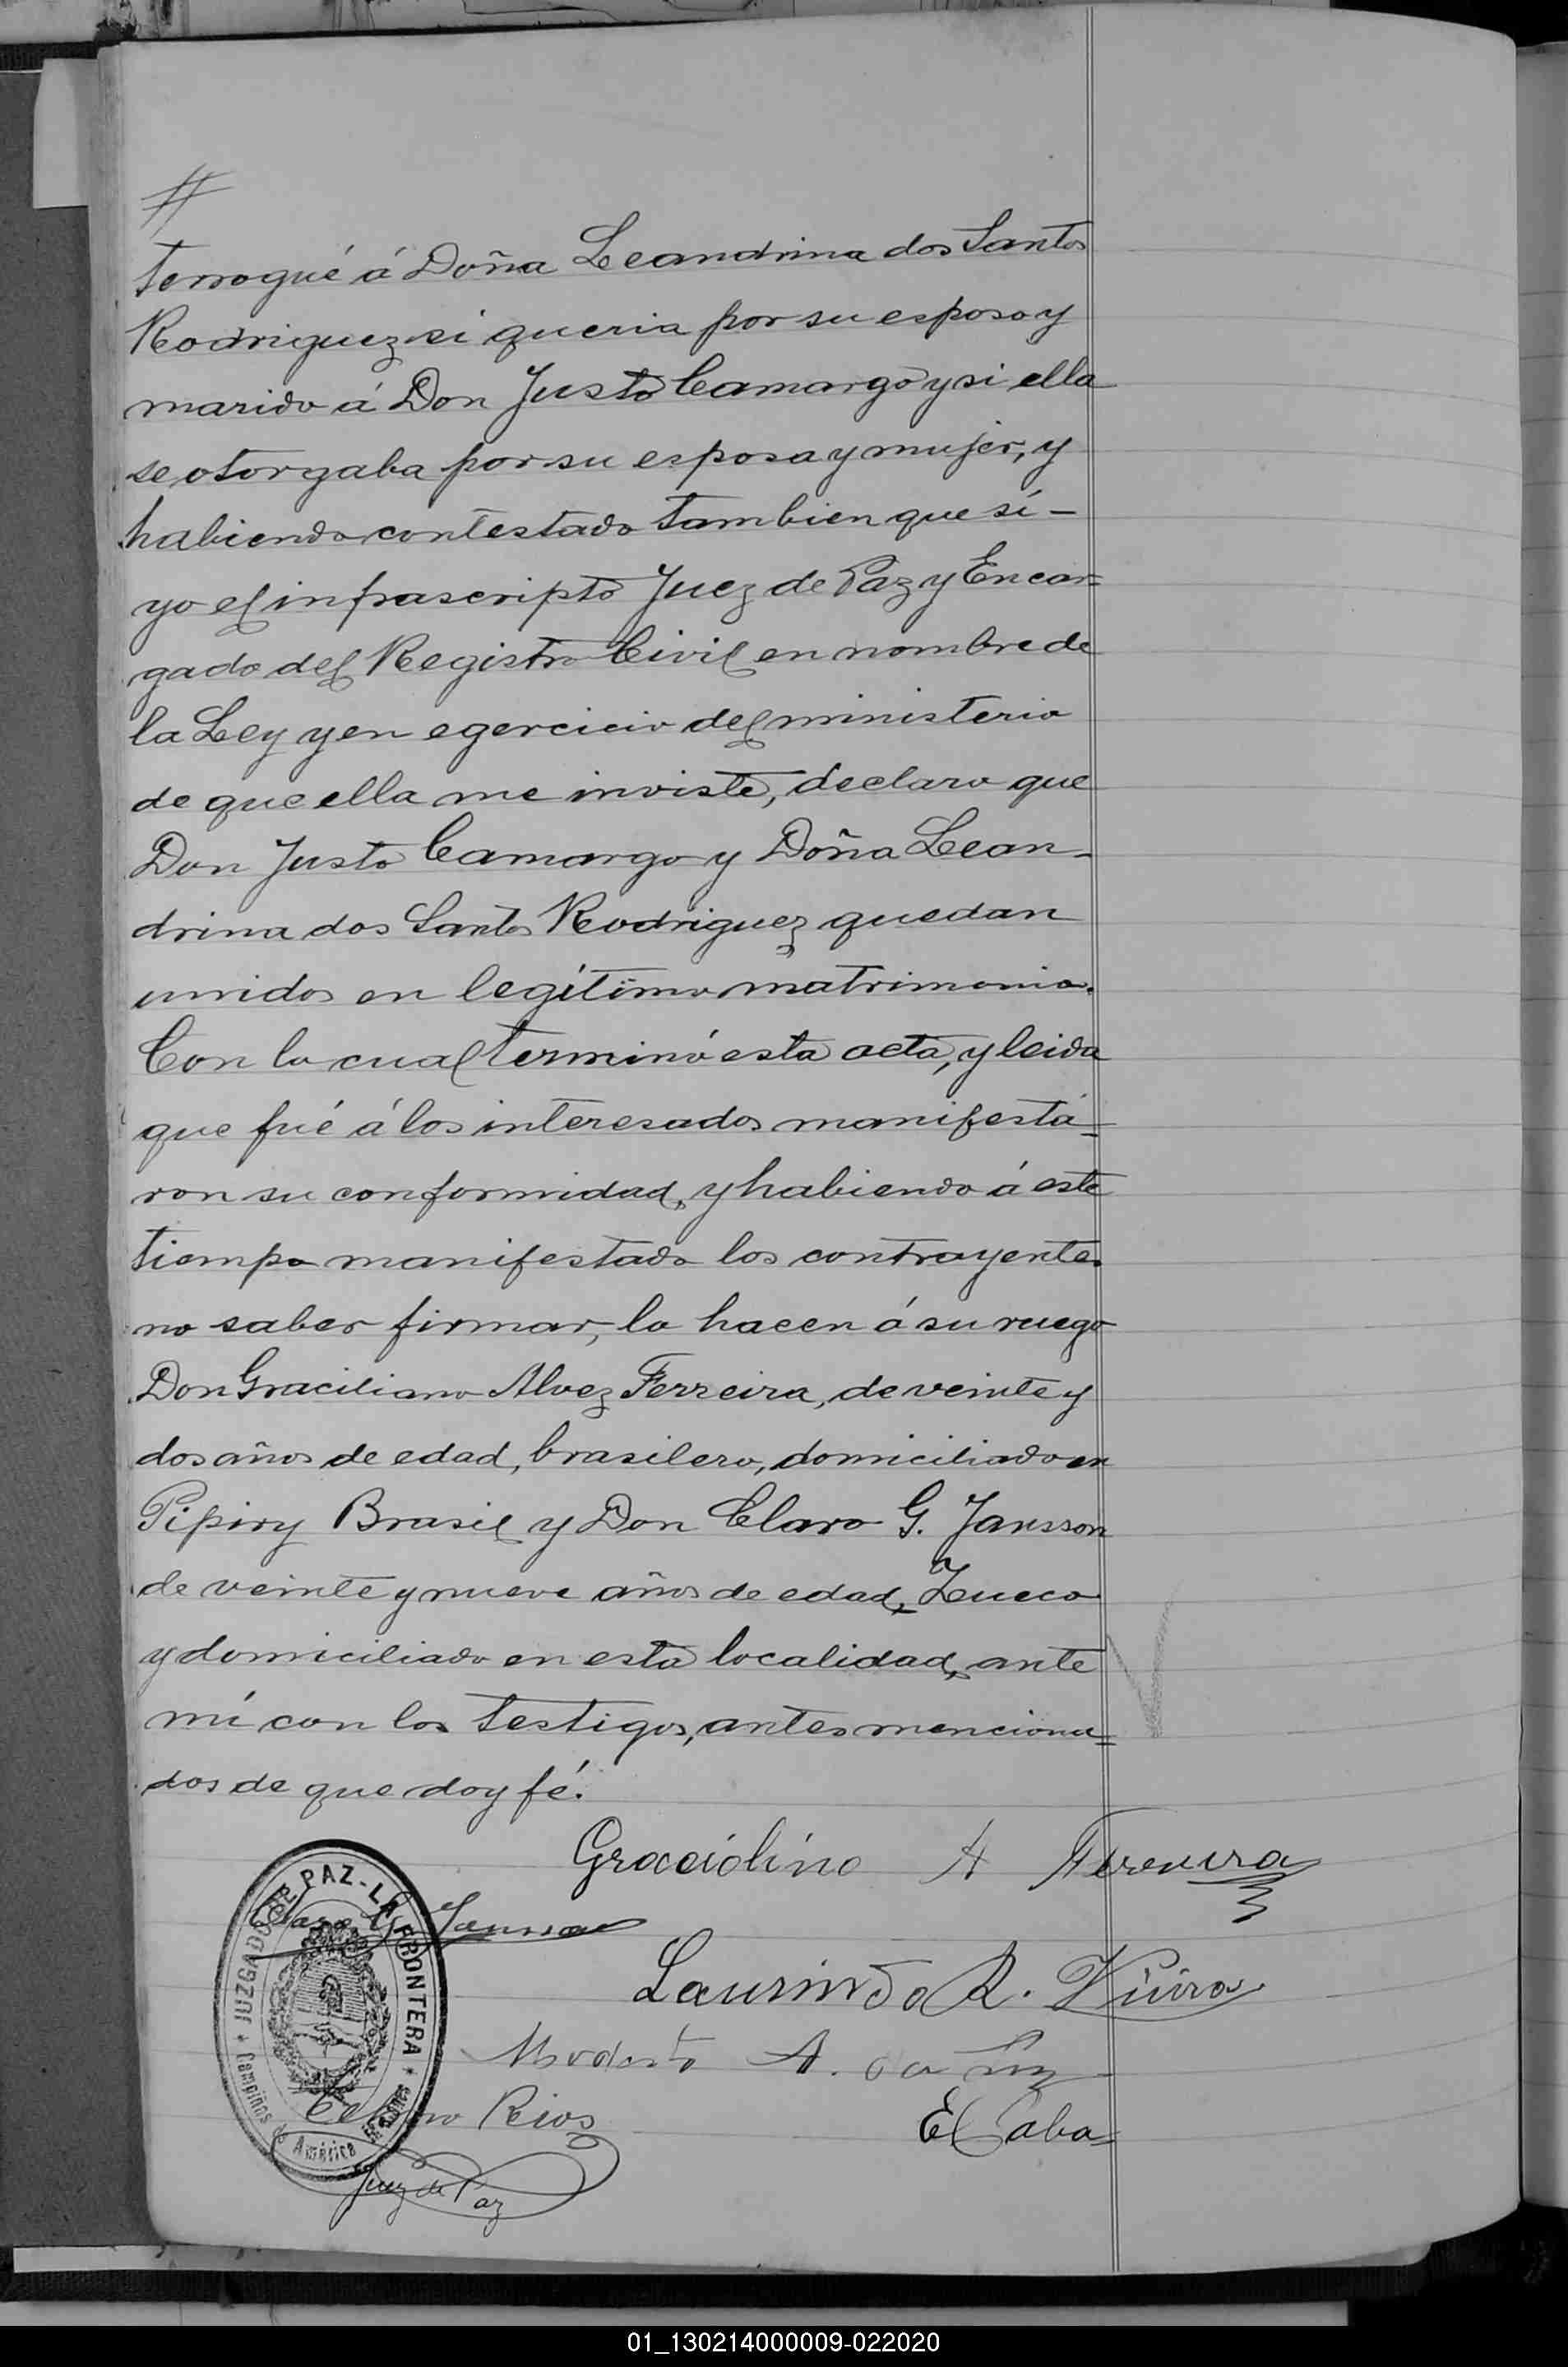 #
terrogué á Doña Leandrina dos Santos
Rodriguez si queria por su esposo y
marido á Don Justo Camargo y si ella
se otorgaba por su esposa y mujer, y
habiendo contestado tambien que sí -
yo el infrascripto Juez de Paz y Encar=
gado del Registro Civil en nombre de
la Ley y en egercicio del ministerio
de que ella me inviste, declaro que
Don Justo Camargo y Doña Lean-
drina dos Santos Rodriguez quedan
unidos en legítimo matrimonio.
Con lo cual terminó esta acta, y leida
que fué á los interesados manifestá=
ron su conformidad, y habiendo á este
tiempo manifestado los contrayentes
no saber firmar, lo hacen á su ruego
Don Graciliano Alvez Ferreira, de veinte y
dos años de edad, brasilero, domiciliado en
Pipiry Brasil y Don Claro G. Jansson
de veinte y nueve años de edad, Zueco
y domiciliado en esta localidad, ante
mí con los testigos, antes menciona=
dos de que doy fé.
Graciolino A Ferreira
Claro G. Jansson
Laurindo R. Vieira
Modesto A. da Luz
Rios
El Caba=
Juez de Paz
JUZGADO DE PAZ - LA FRONTERA
Campiñas de América Misiones
01_130214000009-022020